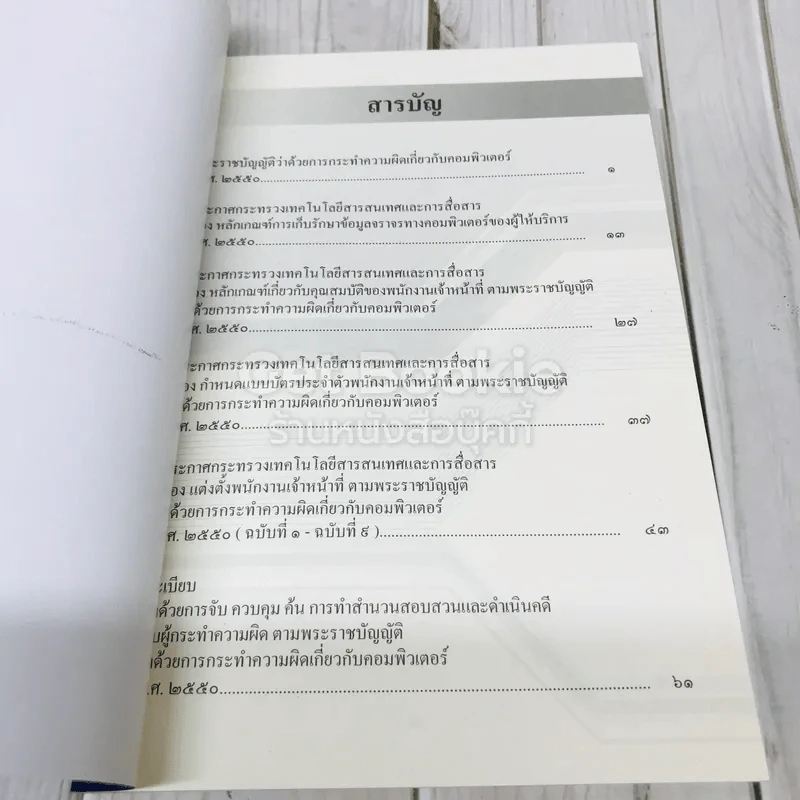 สารบัญ
ะราชบัญญัติว่าด้วยการกระทำความผิดเกี่ยวกับคอมพิวเตอร์
ศ. ๒๕๕๐ ๑
ะกาศกระทรวงเทคโนโลยีสารสนเทศและการสื่อสาร
อง หลักเกณฑ์การเก็บรักษาข้อมูลจราจรทางคอมพิวเตอร์ของผู้ให้บริการ
ศ. ๒๕๕๐ ๑๓
ะกาศกระทรวงเทคโนโลยีสารสนเทศและการสื่อสาร
อง หลักเกณฑ์เกี่ยวกับคุณสมบัติของพนักงานเจ้าหน้าที่ ตามพระราชบัญญัติ
ด้วยการกระทำความผิดเกี่ยวกับคอมพิวเตอร์
ศ. ๒๕๕๐ ๒๗
ะกาศกระทรวงเทคโนโลยีสารสนเทศและการสื่อสาร
อง กำหนดแบบบัตรประจำตัวพนักงานเจ้าหน้าที่ ตามพระราชบัญญัติ
ด้วยการกระทำความผิดเกี่ยวกับคอมพิวเตอร์
ศ. ๒๕๕๐ ๓๗
Get Bookie
ร้านหนังสือบุ๊คกี้
ะกาศกระทรวงเทคโนโลยีสารสนเทศและการสื่อสาร
อง แต่งตั้งพนักงานเจ้าหน้าที่ ตามพระราชบัญญัติ
ด้วยการกระทำความผิดเกี่ยวกับคอมพิวเตอร์
ศ. ๒๕๕๐ ( ฉบับที่ ๑ - ฉบับที่ ๙ ) ๔๓
ะเบียบ
ด้วยการจับ ควบคุม ค้น การทำสำนวนสอบสวนและดำเนินคดี
บผู้กระทำความผิด ตามพระราชบัญญัติ
ด้วยการกระทำความผิดเกี่ยวกับคอมพิวเตอร์
.ศ. ๒๕๕๐ ๖๑